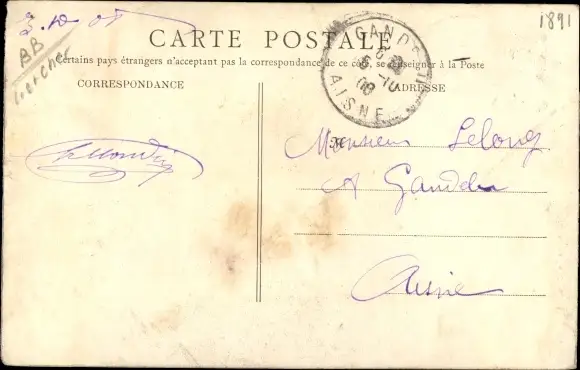 1891
3.10 08
AB
CARTE POSTALE
Certains pays étrangers n'acceptent pas la correspondance de ce côté, se renseigner à la Poste
CORRESPONDANCE
ADRESSE
GANDELU
6 -10
08
AISNE
Monsieur Lelong
A Gandelu
Aisne